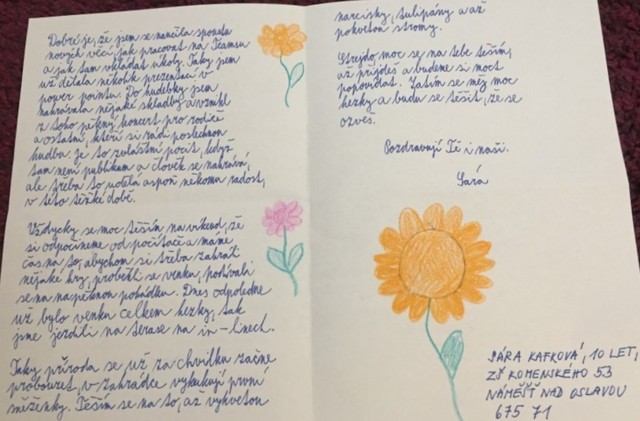 Dobré je, že jsem se naučila spousta
nových věcí, jak pracovat na Teamsu
a jak tam vkládat úkoly. Taky jsem
už dělala několik prezentací v
power pointu. Do hudebky jsem
nahrávala nějaké skladby a vznikl
z toho pěkný koncert pro rodiče
a ostatní, kteří si rádi poslechnou
hudbu. Je to zvláštní pocit, když
tam není publikum a člověk se nahrává,
ale třeba to udělá aspoň někomu radost,
v této těžké době.
Vždycky se moc těším na víkend, že
si odpočineme od počítače a máme
čas na to, abychom si třeba zahráli
nějaké hry, proběhli se venku, podívali
se na napěknou pohádku. Dnes odpoledne
už bylo venku celkem hezky, tak
jsme jezdili na terase na in-linech.
Taky příroda se už za chvilku začne
probouzet, v zahrádce vykukují první
sněženky. Těším se na to, až vykvetou
narcisky, tulipány a až
pokvetou stromy.
Strejdo, moc se na tebe těším,
až přijdeš a budeme si moct
popovídat. Zatím se měj moc
hezky a budu se těšit, že se
ozveš.
Pozdravují Tě i naši.
Sára
SÁRA KAFKOVÁ, 10 LET,
ZŠ KOMENSKÉHO 53
NÁMĚŠŤ NAD OSLAVOU
675 71